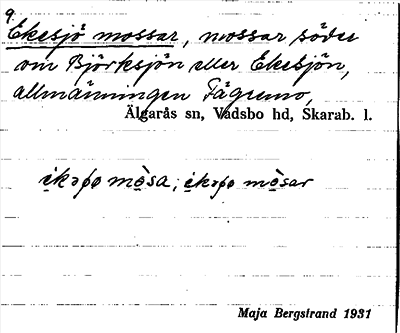 9.
Ekesjö mossar, mossar söder
om Björksjön eller Ekesjön,
allmänningen Fägremo,
Älgarås sn, Vadsbo hd, Skarab. l.
mòsa; mòsar
Maja Bergstrand 1931